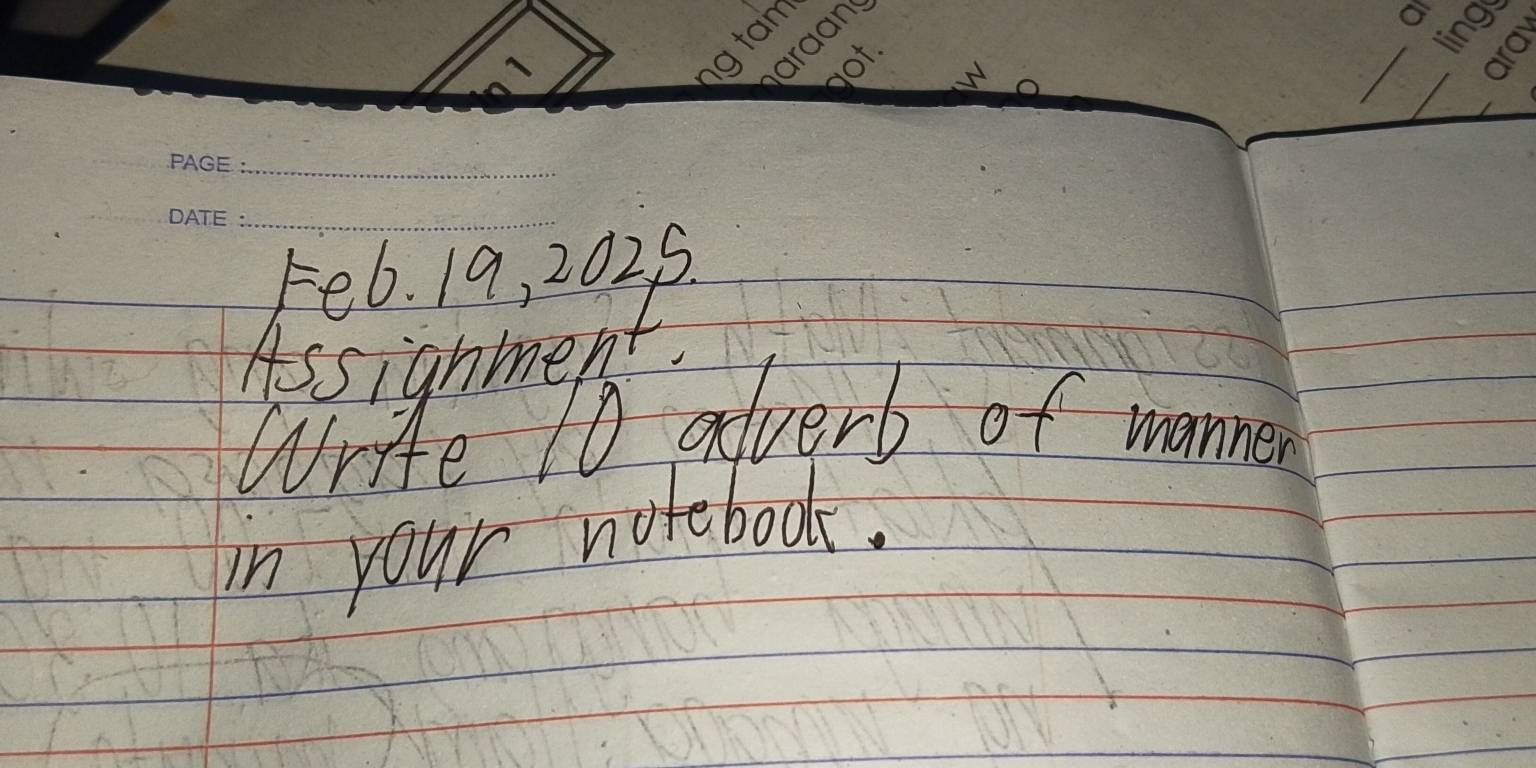 in 1
ng tam
maraang
got.
aw
o
ar
lingg
araw
PAGE :
DATE :
Feb. 19, 2025.
Assignment.
Write 10 adverb of manner
in your notebook.